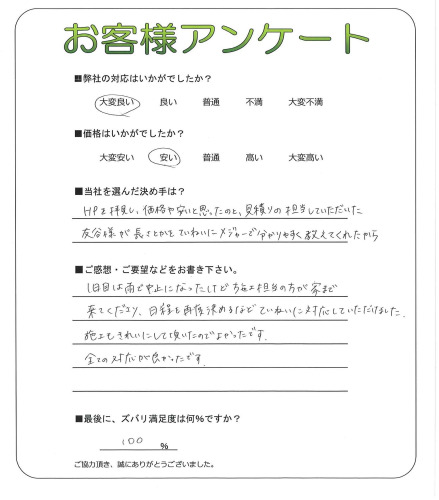 お客様アンケート
■弊社の対応はいかがでしたか？
大変良い 良い 普通 不満 大変不満
■価格はいかがでしたか？
大変安い 安い 普通 高い 大変高い
■当社を選んだ決め手は？
HPを拝見し、価格や安いと思ったのと、見積りの担当していただいた
灰谷様が長さとかをていねいにメジャーで分かりやすく教えてくれたから
■ご感想・ご要望などをお書き下さい。
1日目は雨で中止になったけど施工担当の方が家まで
来てくださり、日程を再度決めるなどていねいに対応していただけました。
施工もきれいにして頂いたのでよかったです。
全ての対応が良かったです。
■最後に、ズバリ満足度は何%ですか？
100 %
ご協力頂き、誠にありがとうございました。